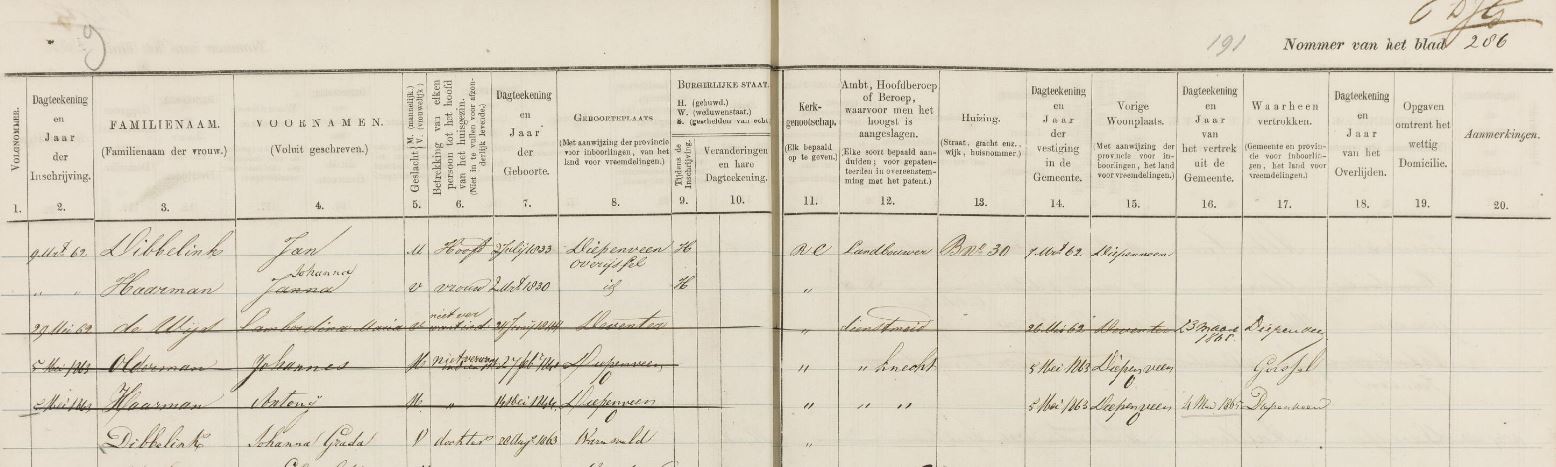 191 Nommer van het blad 286
VOLGNOMMER.
1.
Dagteekening
en
Jaar
der
Inschrijving.
2.
FAMILIENAAM.
(Familienaam der vrouw.)
3.
VOORNAMEN.
(Voluit geschreven.)
4.
Geslacht M. (mannelijk.)
V. (vrouwelijk.)
5.
Betrekking van elken
persoon tot het hoofd
van het huisgezin.
(Niet in te vullen voor afzon-
derlijk levende.)
6.
Dagteekening
en
Jaar
der
Geboorte.
7.
GEBOORTEPLAATS
(Met aanwijzing der provincie
voor inboorlingen, van het
land voor vreemdelingen.)
8.
BURGERLIJKE STAAT.
H. (gehuwd.)
W. (weduwenstaat.)
S. (gescheiden van echt.)
Tijdens de
Inschrijving.
9.
Veranderingen
en hare
Dagteekening.
10.
Kerk-
genootschap.
(Elk bepaald
op te geven.)
11.
Ambt, Hoofdberoep
of Beroep,
waarvoor men het
hoogst is
aangeslagen.
(Elke soort bepaald aan-
duiden; voor gepaten-
teerden in overeenstem-
ming met het patent.)
12.
Huizing.
(Straat, gracht enz.,
wijk, huisnommer.)
13.
Dagteekening
en
Jaar
der
vestiging
in de
Gemeente.
14.
Vorige
Woonplaats.
(Met aanwijzing der
provincie voor in-
boorlingen, het land
voor vreemdelingen.)
15.
Dagteekening
en
Jaar
van
het vertrek
uit de
Gemeente.
16.
Waarheen
vertrokken.
(Gemeente en provin-
cie voor inboorlin-
gen, het land voor
vreemdelingen.)
17.
Dagteekening
en
Jaar
van het
Overlijden.
18.
Opgaven
omtrent het
wettig
Domicilie.
19.
Aanmerkingen.
20.
9 Mrt 62 Dibbelink Jan M Hoofd 2 Julij 1833 Diepenveen H RC Landbouwer B No 30 7 Mrt 62 Diepenveen
overijssel
Johanna
" " Haarman Janna v vrouw 2 Oct 1830 id H "
niet ver
29 Mei 62 de Wijs Lamberdina Maria v want Deventer " dienstmeid 26 Mei 62 Deventer 23 maart Diepenveen
5 Mei 1863 Olderman Johannes M niet verwant 27 feb Diepenveen " " knecht 5 Mei 1863 Diepenveen Gorssel
5 Mei 1863 Haarman Antonij M " 14 Mei 1844 Diepenveen " " " 5 Mei 1863 Diepenveen Diepenveen
Dibbelink Johanna Grada V dochter 1863 "